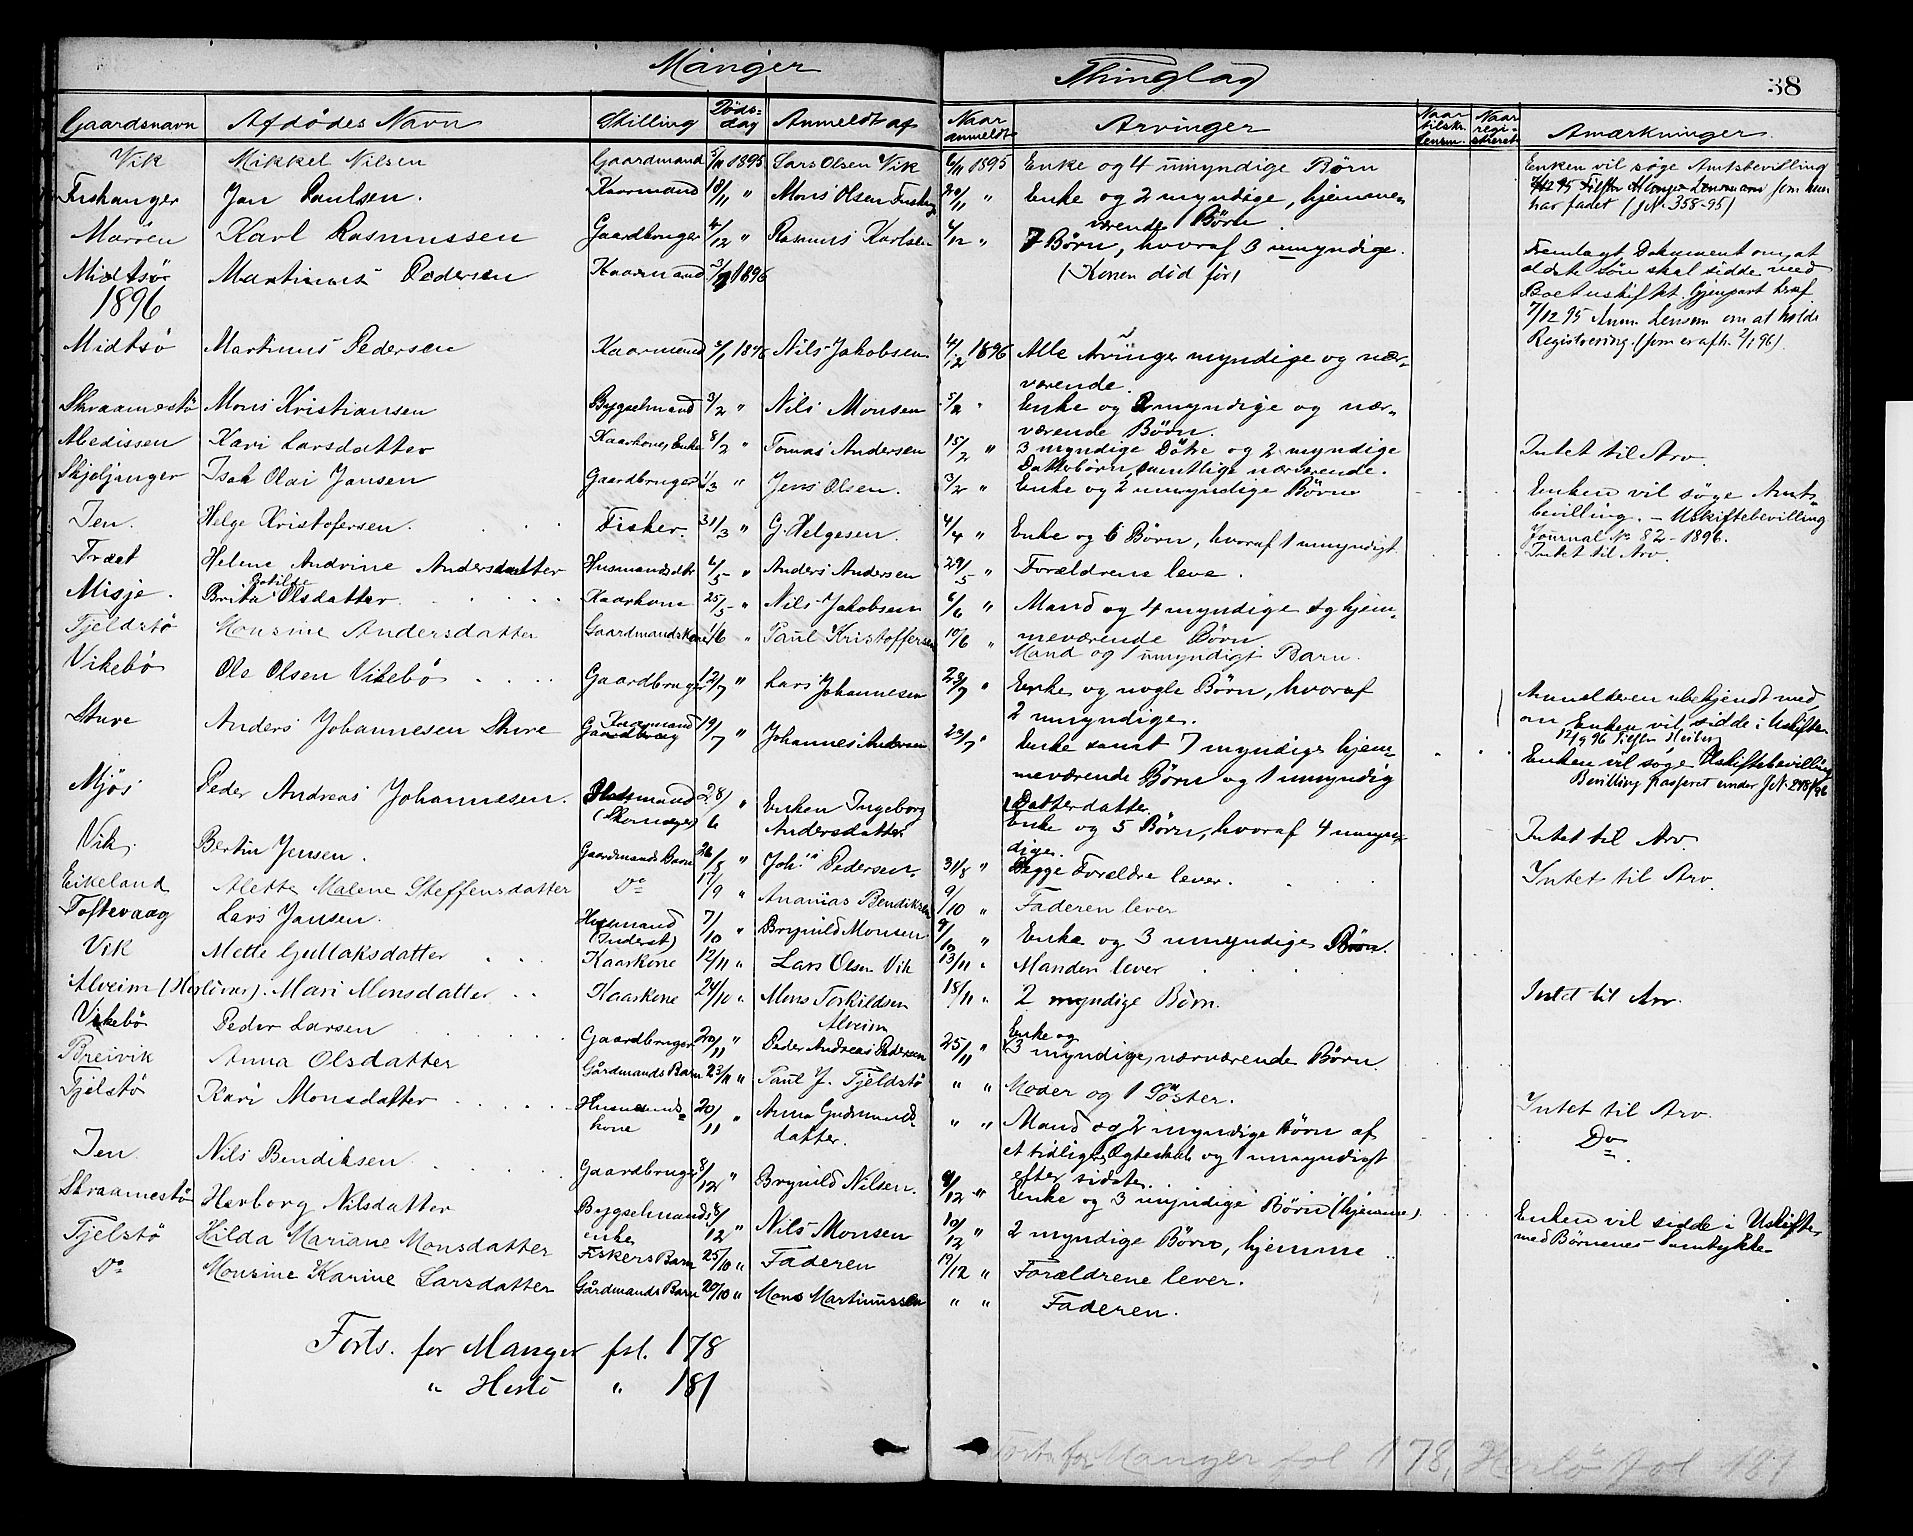 Manger Thinglag 38
Gaardsnavn Afdødes Navn Stilling Døds-dag Anmeldt af Naar anmeldt Arvinger Naar tilskr. Lensm. Naar regi-streret Anmærkninger.
Vik Mikkel Nilsen Gaardmand 5/11 1895 Lars Olsen Vik 6/11 1895 Enke og 4 umyndige Børn Enken vil søge Amtsbevilling
Fushanger Jan Paulsen. Kaarmand 18/11 " Mons Olsen 20/11 " Enke og 2 myndige, hjemme-værende Børn som hun har faaet (J.N. 358-95)
Marøen Karl Rasmussen Gaardbruger 4/12 " Rasmus Karlsen 6/12 " 7 Børn, hvoraf 3 umyndige. (Konen död før) Fremlagt Dokument om, at
Midtsö Martinus Pedersen Kaarmand 1896 ældste søn skal sidde med
1896 Boet uskiftet. Gjenpart
7/12 95 Anm. Lensm om at holde
Midtsö Martinus Pedersen Kaarmand 2/1 1896 Nils Jakobsen 4/2 1896 Alle Arvinger myndige og nær-værende. Registrering. (som er afh. 7/1 96).
Skraamestö Mons Kristiansen Bygselmand 3/2 " Nils Monsen 5/2 " Enke og 2 myndige og nær-værende Børn.
Abedissen Kari Larsdatter Kaarkone, Enke 8/2 " Tomas Andersen 15/2 " 3 myndige Dötre og 2 myndige Datterbørn, samtlige nærværende. Intet til Arv.
Skjeljanger Isak Olai Jansen Gaardbruger 1/3 " Jens Olsen. 3/2 " Enke og 2 umyndige Børn Enken vil søge Amts-
bevilling. - Uskiftebevilling
Ien. Helge Kristofersen. Fisker. 31/3 " G. Helgesen. 4/4 " Enke og 6 Børn, hvoraf 1 umyndigt. Journal No 82 - 1896.
Træet Helene Andrine Andersdatter Husmandsdtr 6/5 " Anders Andersen 29/5 " Forældrene leve. Intet til Arv.
Misje. Brita Botilde Olsdatter Kaarkone 25/5 " Nils Jakobsen 6/6 " Mand og 4 myndige og hjem-meværende Børn
Tjeldstö Monsine Andersdatter Gaardmandskone 1/6 " Paul Kristoffersen 10/6 " Mand og 1 umyndigt Barn.
Vikebö Ole Olsen Vikebö Gaardbruger 12/7 " Lars Johannesen 23/7 " Enke og nogle Børn, hvoraf 2 umyndige. Anmelderen ubekjendt med
om Enken vil sidde i Uskifte.
Sture Anders Johannesen Sture Gaardbrug 19/7 " Johannes Andersen 23/7 " Enke samt 7 myndige hjem-meværende Børn og 1 umyndig Datterdatter. Enken vil søge Uskiftebevilling
Mjøs Peder Andreas Johannesen. Pladsmand (Skomager) 28/6 " Enken Ingeborg Andersdatter Enke og 5 Børn, hvoraf 4 umyn-dige.
Vik. Bertin Jensen. Gaardmands Barn 26/8 " Joh.s Pedersen. 31/8 " Begge Forældre lever. Intet til Arv
Eikeland Alette Malene Steffensdatter Do 17/9 " Ananias Bendiksen 9/10 " Faderen lever Intet til Arv.
Toftevaag Lars Jansen. Husmand (Inderst) 7/10 " Brynild Monsen 9/10 " Enke og 3 umyndige Børn.
Vik Mette Gullaksdatter Kaarkone 12/11 " Lars Olsen Vik 13/11 " Manden lever
Alveim (Herløvær). Mari Monsdatter Kaarkone 24/10 " Mons Torkildsen Alveim 18/11 " 2 myndige Børn. Intet til Arv.
Vikebö Peder Larsen Gaardbruger 20/11 " Peder Andreas Pedersen 25/11 " Enke og 3 myndige, nærværende Børn.
Breivik Anna Olsdatter Gårdmands Barn 23/11 " Paul J. Tjeldstö " " Moder og 1 Søster.
Tjelstö Kari Monsdatter Husmands-kone 20/11 " Anna Gudmunds-datter. " " Mand og 2 myndige Børn af et tidligere Ægteskab og 1 umyndigt efter sidste. Intet til Arv.
Do.
Ien Nils Bendiksen Gaardbruger 8/12 " Brynild Nilsen. 9/12 " Enke og 3 myndige Børn (hjemme). Enken vil sidde i Uskifte
med Børnenes Samtykke
Skraamestö Herborg Nilsdatter Bygselmands enke 8/12 " Nils Monsen 10/12 " 2 myndige Børn, hjemme
Tjelstö Hilda Mariane Monsdatter Fiskers Barn 25/10 " Faderen 19/12 " Forældrene lever.
Do Monsine Karine Larsdatter Gårdmands Barn 20/10 " Mons Martinussen " " Faderen.
Forts. for Manger fol. 178
" Herlö " 181
Forts. for Manger fol 178, Herlö fol 181